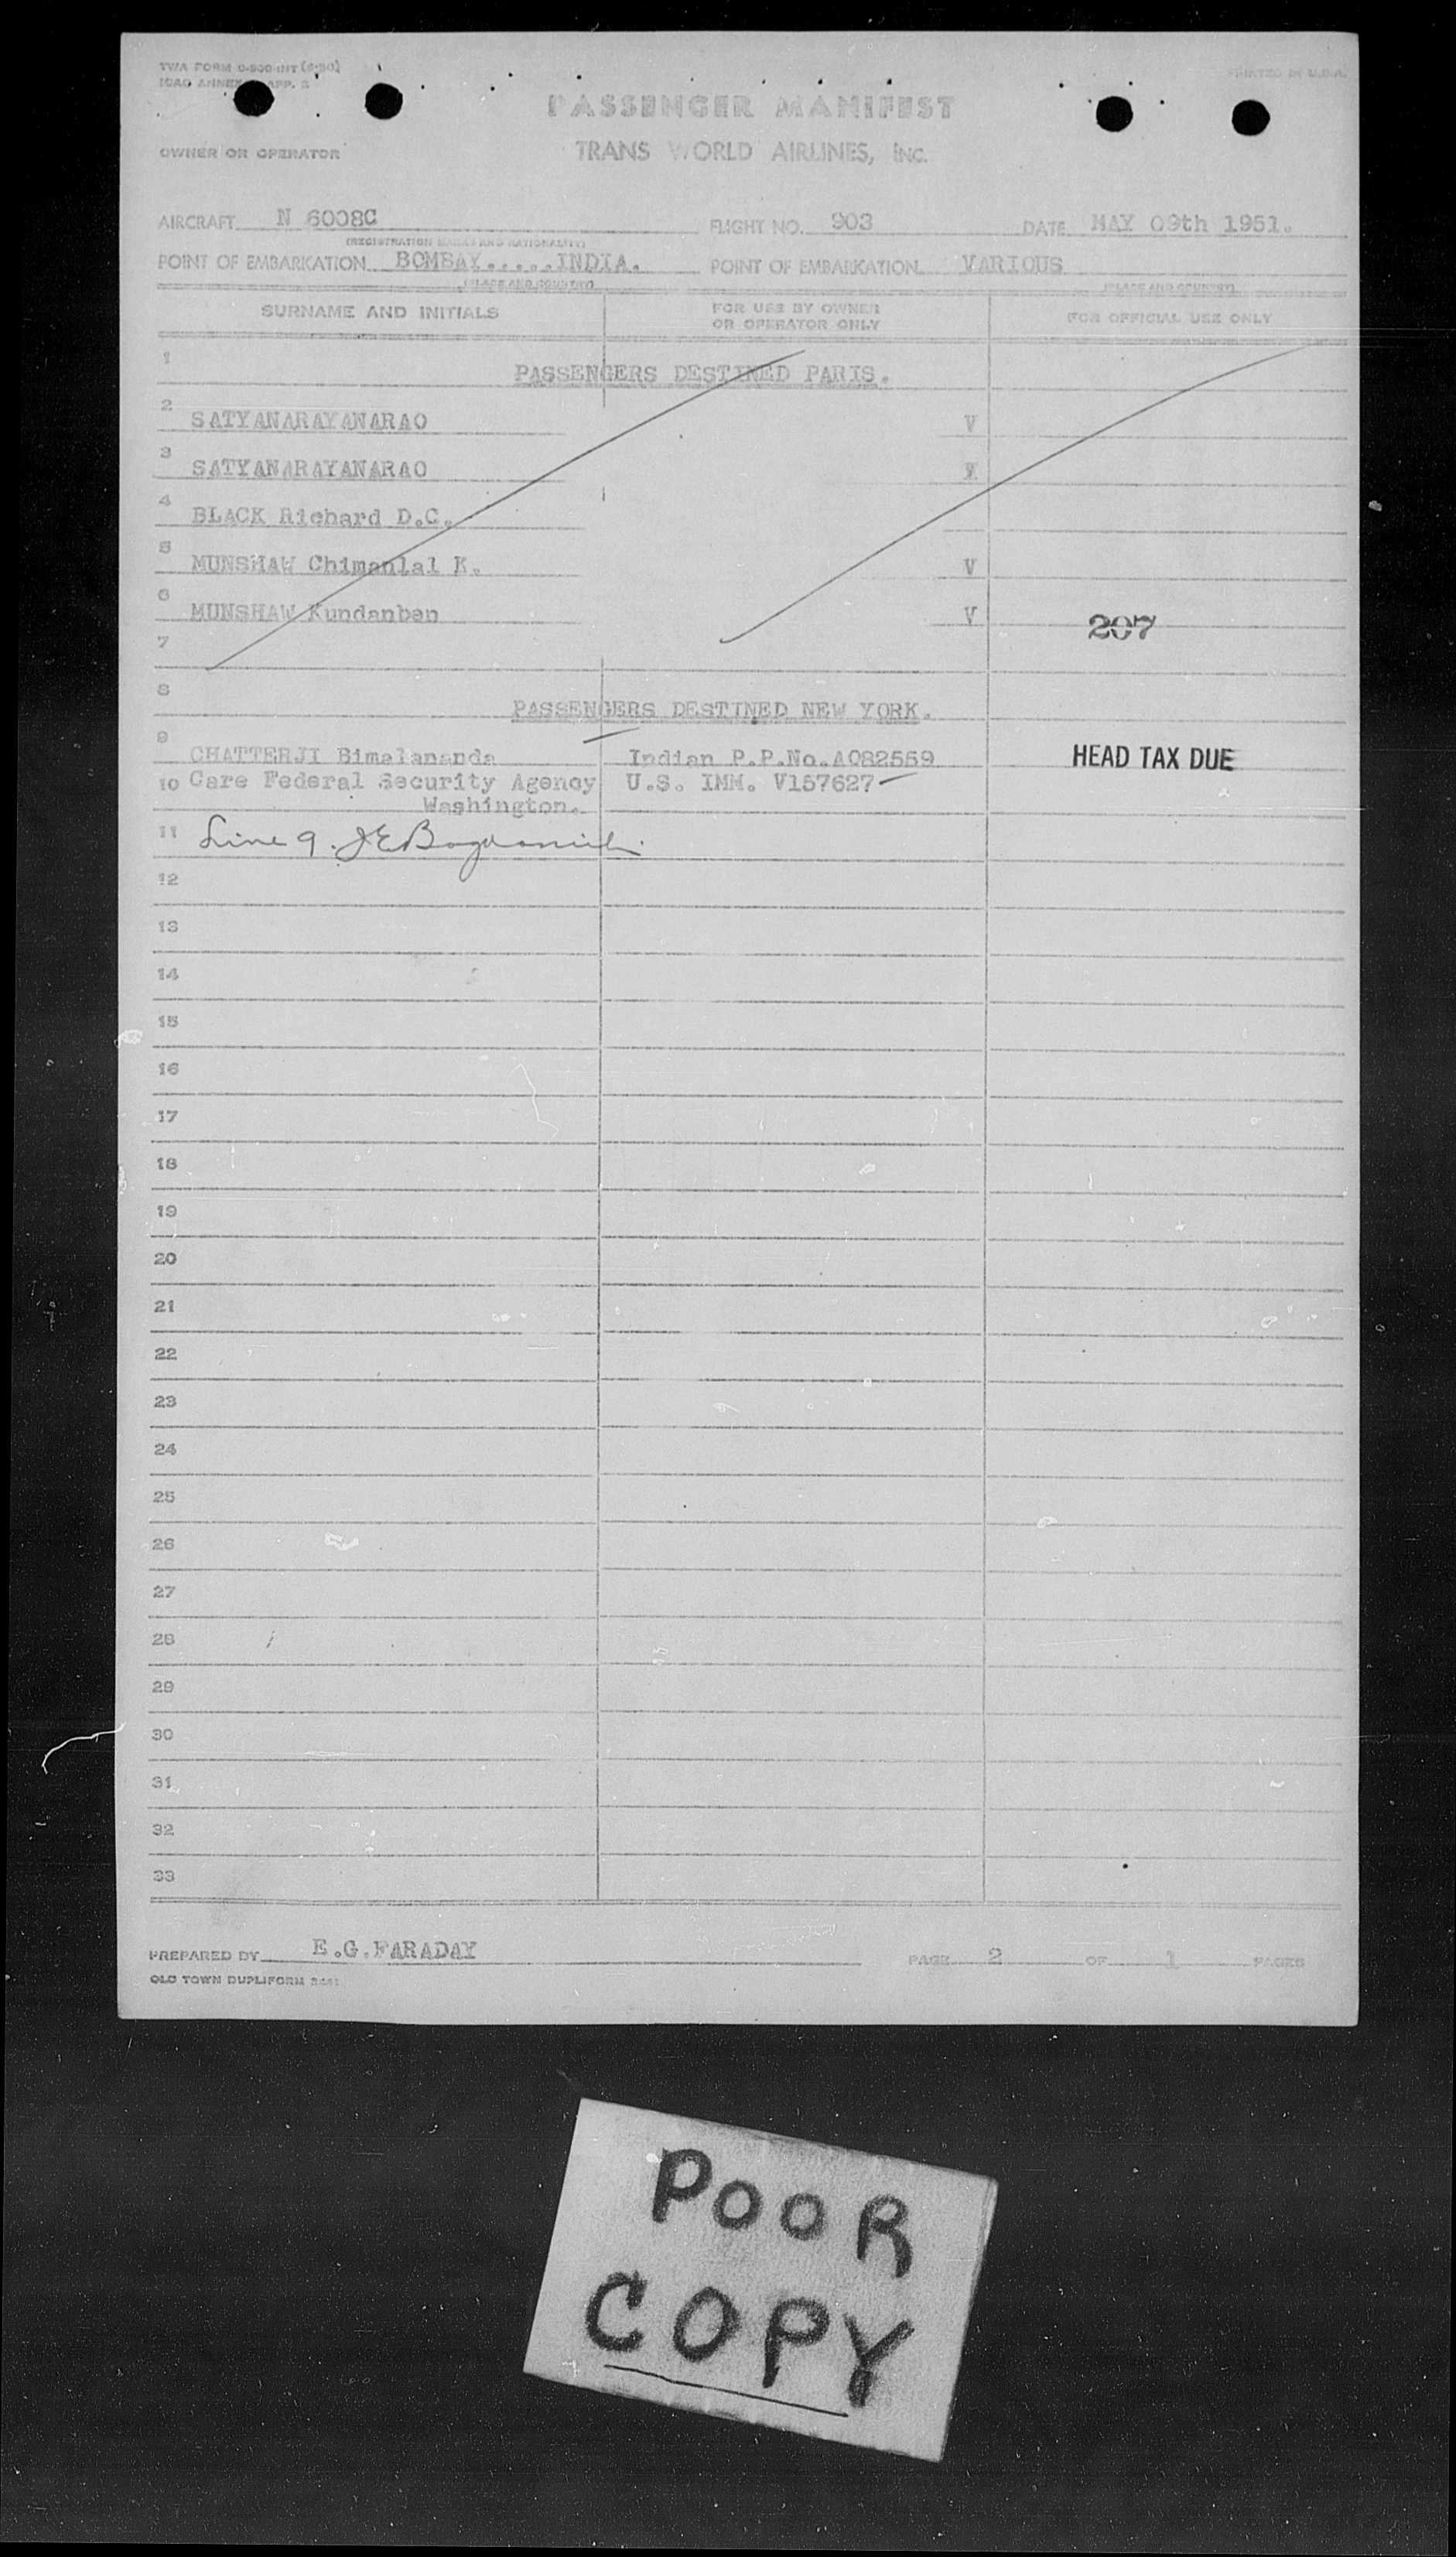 TWA FORM O-500-INT (6-50)
ICAO ANNEX APP. 2
PRINTED IN U.S.A.
PASSENGER MANIFEST
OWNER OR OPERATOR
TRANS WORLD AIRLINES, INC.
AIRCRAFT N 6008C FLIGHT NO. 903 DATE MAY 09th 1951.
(REGISTRATION MARKS AND NATIONALITY)
POINT OF EMBARKATION BOMBAY.....INDIA. POINT OF EMBARKATION VARIOUS
(PLACE AND COUNTRY) (PLACE AND COUNTRY)
SURNAME AND INITIALS FOR USE BY OWNER OR OPERATOR ONLY FOR OFFICIAL USE ONLY
1 PASSENGERS DESTINED PARIS.
2 SATYANARAYANARAO V
3 SATYANARAYANARAO
4 BLACK Richard D.C.
5 MUNSHAW Chimanlal K. V
6 MUNSHAW Kundanben V
207
7
8 PASSENGERS DESTINED NEW YORK.
9 CHATTERJI Bimalananda Indian P.P.No.A082559 HEAD TAX DUE
10 Care Federal Security Agency U.S. IMM. V157627
Washington.
11 Line 9.
12
13
14
15
16
17
18
19
20
21
22
23
24
25
26
27
28
29
30
31
32
33
PREPARED BY E.G.FARADAY PAGE 2 OF 1 PAGES
OLD TOWN DUPLIFORM
POOR
COPY